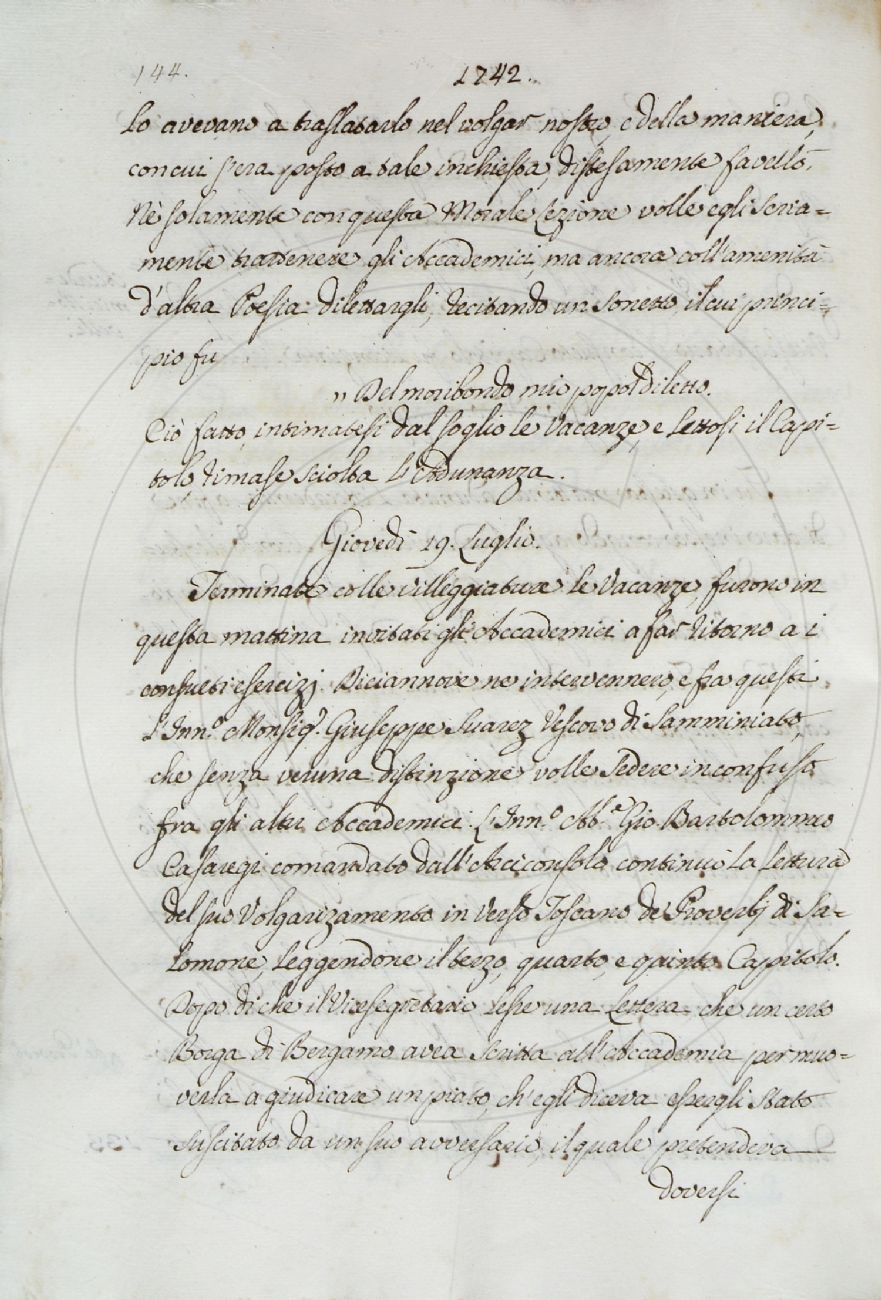 144.
1742.
lo avevano a traslatarlo nel volgar nostro, e della maniera,
con cui s'era posto a tale inchiesta, distesamente favellò.
Nè solamente con questa Morale Lezione volle egli seria=
mente trattenere gli Accademici, ma ancora coll'amenità
d'altra Poesia dilettargli, recitando un Sonetto, il cui princi=
pio fu
" Del moribondo mio popol diletto.
Ciò fatto, intimatesi dal soglio le Vacanze, e lettosi il Capi=
tolo, rimase sciolta l'Adunanza.
Giovedì 19. Luglio.
Terminate colle villeggiature le Vacanze, furono in
questa mattina invitati gli Accademici a far ritorno a i
consueti esercizj. Diciannove ne intervennero, e fra questi
l'Inn.º Monsig.r Giuseppe Suarez Vescovo di Samminiato,
che senza veruna distinzione volle sedere in confuso
fra gli altri Accademici. L'Inn.º Ab.e Gio Bartolommeo
Casaregi comandato dall'Arciconsolo continuò la lettura
del suo Volgarizamento in verso Toscano de' Proverbj di Sa=
lomone, leggendone il terzo, quarto, e quinto Capitolo.
Dopo di che il Vicesegretario lesse una Lettera che un certo
Borga di Bergamo avea scritta all'Accademia per muo=
verla a giudicare un piato, ch'egli diceva essergli stato
suscitato da un suo avversario, il quale pretendeva
doversi